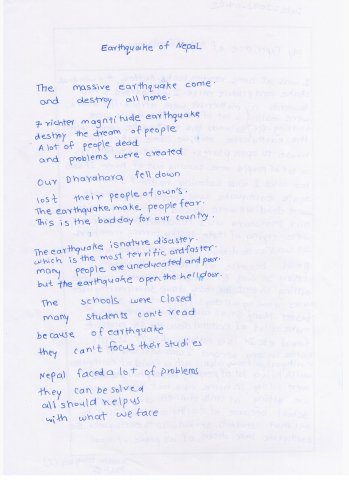 Earthquake of Nepal
The massive earthquake come.
and destroy all home.
7 richter magntitude earthquake
destroy the dream of people
A lot of people dead
and problems were created
Our Dharahara fell down
lost their people of own's.
The earthquake make people fear.
This is the bad day for our country.
The earthquake is nature disaster.
which is the most terrific and faster.
many people are uneducated and poor.
but the earthquake open the hell door.
The schools were closed
many students can't read
because of earthquake
they can't focus their studies
Nepal faced a lot of problems
they can be solved
all should help us
with what we face